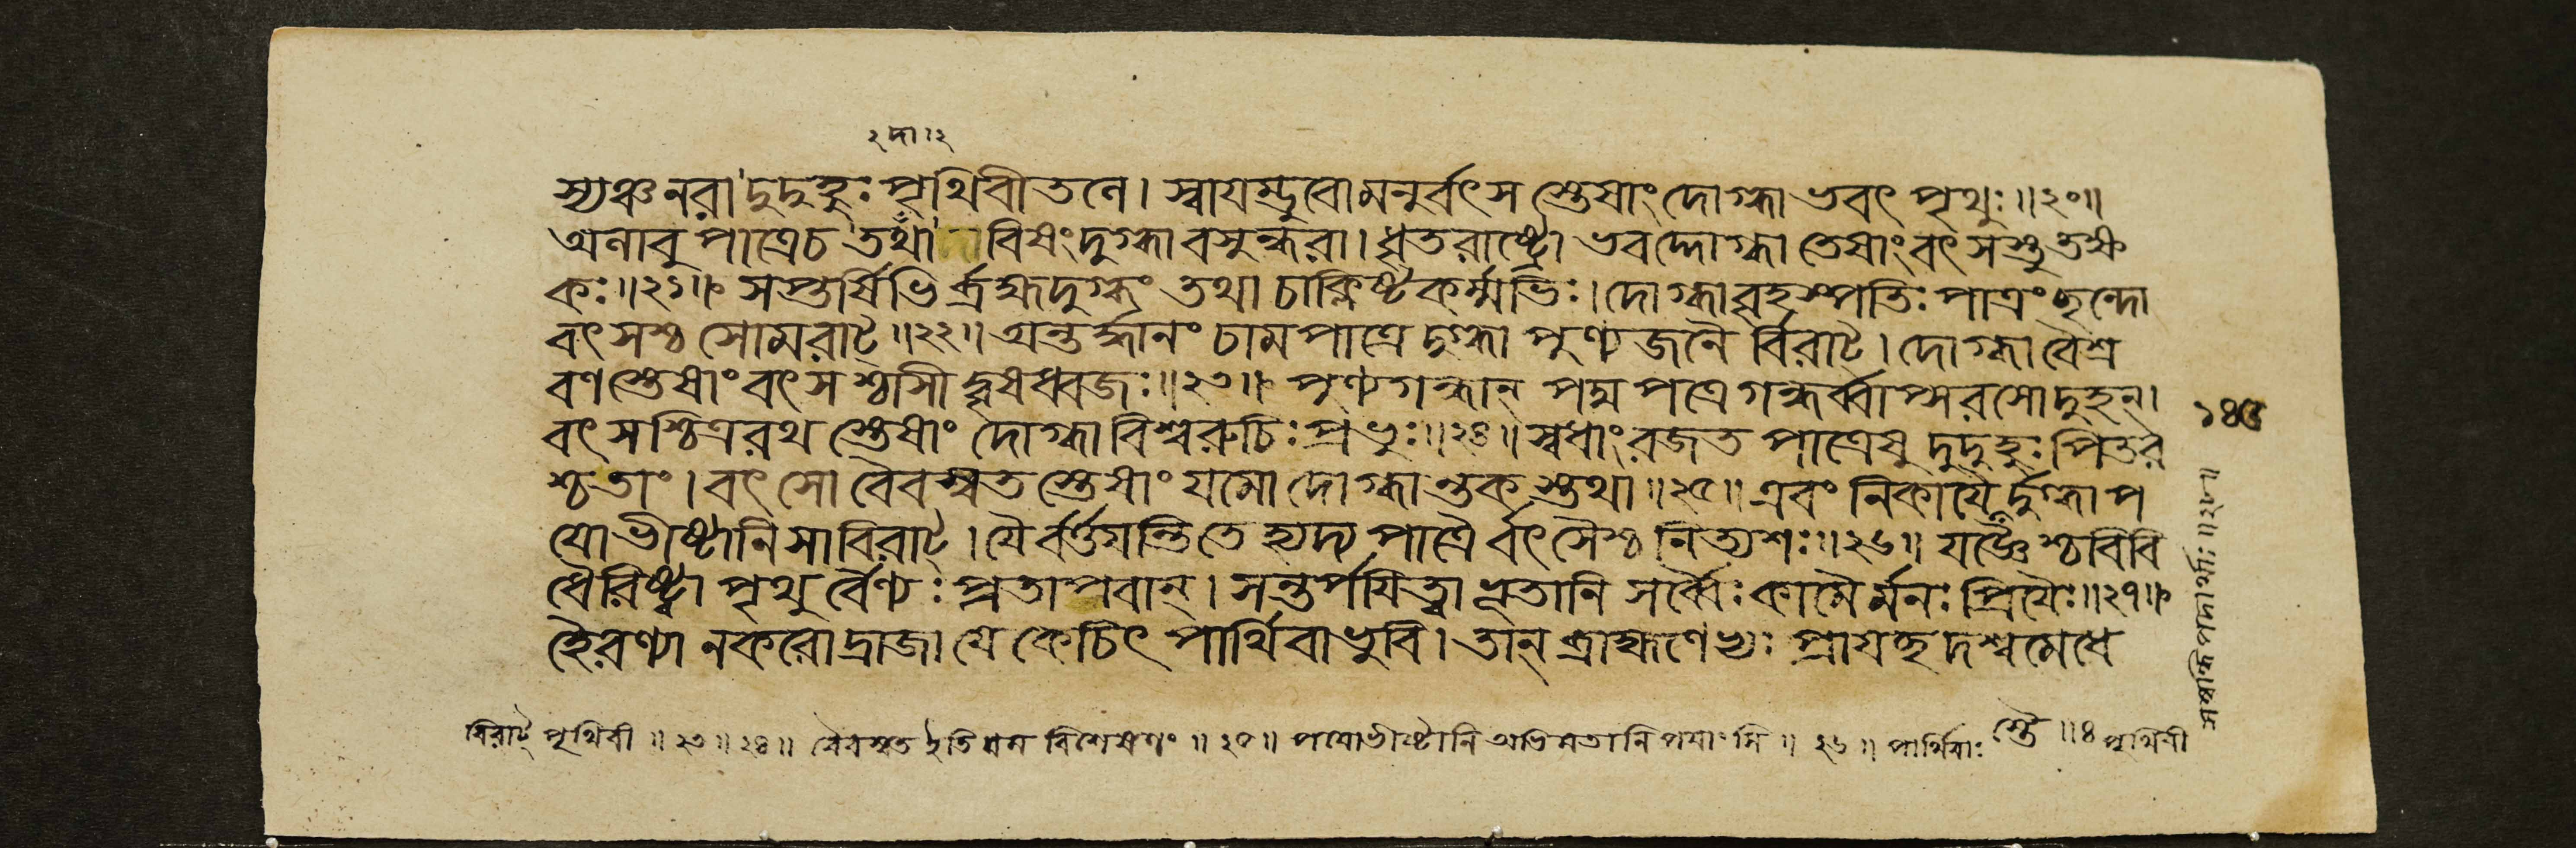 ২ দা ।২
স্যঞ্চ নরা দুদুহুঃ পৃথিবীতলে। স্বায়ম্ভুবো মনুর্বৎস স্তেষাং দোগ্ধাভবৎ পৃথুঃ॥২০॥
অলাবুপাত্রে চ তথা বিষং দুগ্ধা বসুন্ধরা। ধৃতরাষ্ট্রো ভবদ্দোগ্ধা তেষাং বৎসস্তু তক্ষ
কঃ॥২১॥ সপ্তর্ষিভির্ব্রহ্ম দুগ্ধং তথা চাক্লিষ্টকর্ম্মভিঃ। দোগ্ধা বৃহস্পতিঃ পাত্রং ছন্দো
বৎসশ্চ সোমরাট্॥২২॥ অন্তর্দ্ধানং চামপাত্রে দুগ্ধা পুণ্যজনৈ র্বিরাট্। দোগ্ধা বৈশ্র
বণ স্তেষাং বৎসশ্চাসীদ্বৃষধ্বজঃ॥২৩॥ পুণ্যগন্ধান্ পদ্মপত্রে গন্ধর্ব্বাপ্সরসোদুহন্।
বৎসশ্চিত্ররথ স্তেষাং দোগ্ধা বিশ্বরুচিঃ প্রভুঃ॥২৪॥ স্বধাং রজতপাত্রেষু দুদুহুঃ পিতর
শ্চ তাং। বৎসো বৈবস্বত স্তেষাং যমো দোগ্ধান্তক স্তথা॥২৫॥ এবং নিকায়ৈর্দুগ্ধা প
য়োভীষ্টানি সা বিরাট্। যৈর্বর্ত্তয়ন্তি তে হ্যদ্য পাত্রৈর্বৎসৈশ্চ নিত্যশঃ॥২৬॥ যজ্ঞৈশ্চ বিবি
ধৈরিষ্ট্বা পৃথুর্বৈণ্যঃ প্রতাপবান্। সন্তর্পয়িত্বা ভূতানি সর্ব্বৈঃ কামৈর্মনঃপ্রিয়ৈঃ॥২৭॥
হৈরণ্যানকরোদ্রাজা যে কেচিৎ পার্থিবা ভুবি। তান্ ব্রাহ্মণেভ্যঃ প্রাযচ্ছদশ্বমেধে
১৪৫
বিরাট্ পৃথিবী॥২৩॥২৪॥ বৈবস্বত ইতি যম বিশেষণং॥২৫॥ পয়োভীষ্টানি অভিমতানি পয়াংসি॥২৬॥ পার্থিবাঃ স্তৈ॥৪ পৃথিবী
সম্বন্ধি পদার্থাঃ॥২৮॥